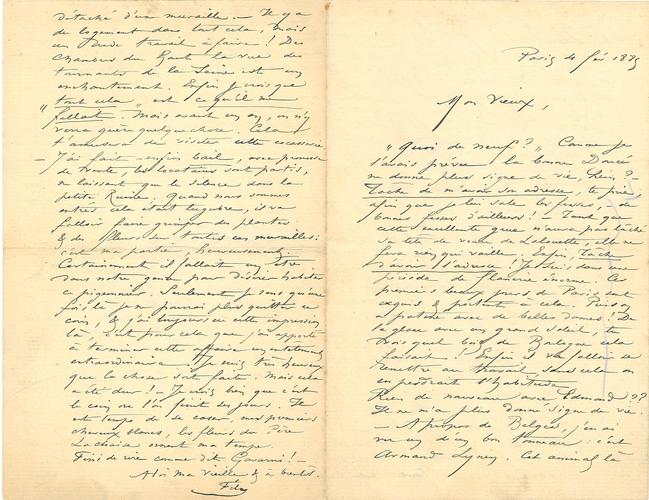 Paris 4 fév 1885
Mon Vieux,
"Quoi de neuf?" Comme je
l'avais prévu la bonne
ne donne plus signe de vie, hein? -
Tâche de m'avoir son adresse, te prie
afin que je lui sale les fesses, de
bonnes fesses d'ailleurs! - Tant que
cette excellente n'aura pas
sa tête de veau de elle ne
fera rien qui vaille. Enfin, Tâche
d'avoir l'adresse! Je suis dans une
période de flânerie énorme. les
premiers beaux jours de Paris sont
exquis & portent à cela. Puis on
a patiné avec de belles dames! De
la glace avec un grand soleil, tu
vois quel bon de cela
faisait! Enfin il va falloir se
remettre au travail, sans cela on
en perdrait l'habitude
Rien de nouveau avec Edmond??
Il ne m'a plus donné signe de vie.
- A propos de Belges, j'en ai
vu un d'un bon tonneau: c'est
Armand Cet animal là
détaché d'une muraille. - Il y a
de logement dans tout cela, mais
un rude travail à faire! Des
chambres du haut la vue des
tournants de la Seine est un
enchantement. Enfin je crois que
"tout cela" est ce qu'il me
fallait. Mais avant un an, on n'y
verra guère quelque chose. Cela
t'amusera de visiter cette
- J'ai fait enfin bail, avec promesse
de vente, les locataires sont partis,
ne laissant que le silence dans la
petite Ruine. Quand nous sommes
entrés cela était lugubre, il va
falloir faire grimper des plantes
& des fleurs sur toutes ces murailles:
c'est ma partie, heureusement.
Certainement il fallait un être
dans notre genre pour désirer habiter
ce pigeonnier. Seulement je sens qu'une
fois là je ne pourrai plus quitter ce
coin, & j'ai toujours eu cette impression
là. C'est pour cela que j'ai apporté
à terminer cette affaire un entêtement
extraordinaire. Je suis très heureux
que la chose soit faite. Mais cela
a été dur! - Je crois bien que c'est
le coin où l'on finit ses jours. Il
est temps de se caser, mes premiers
cheveux blancs, les fleurs du Père
Lachaise ornent ma tempe.
Fini de rire comme dit Gavarni! -
A toi ma vieille & à bientôt.
Fély